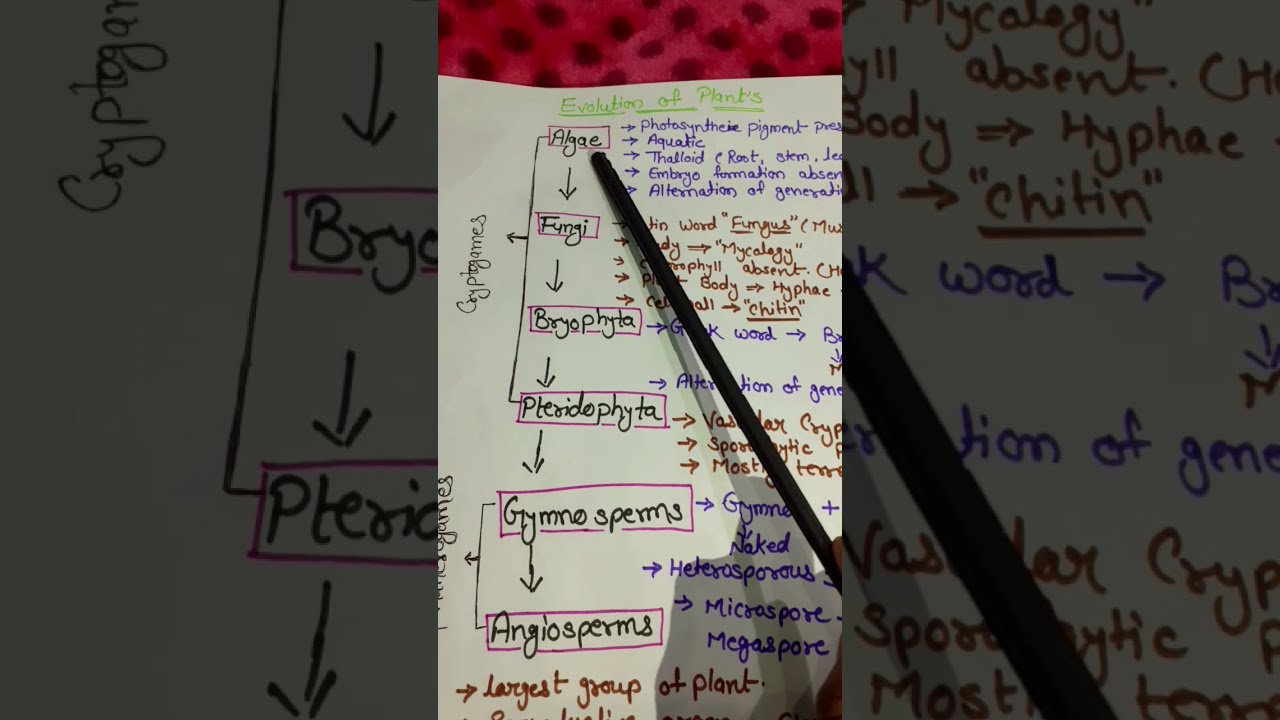 Evolution of Plant's
Algae
→ Photosynthetic pigment pres
→ Aquatic
→ Thalloid (Root, stem, lea
→ Embryo formation absen
→ Alternation of generati
Cryptogames
Fungi
→ tin word "Fungus" (Mus
→ udy ⇒ "Mycology"
→ rophyll absent. (He
→ Body ⇒ Hyphae
→ Cell wall → "chitin"
Bryophyta
→ G k word → Br
→ Alternation of gene
Pteridophyta
→ Vascular Cryp
→ Sporophytic p
→ Mostly terre
Gymnosperms
→ Gymno +
Naked
→ Heterosporous
→ Microspore
Megaspore
Angiosperms
→ largest group of plant.